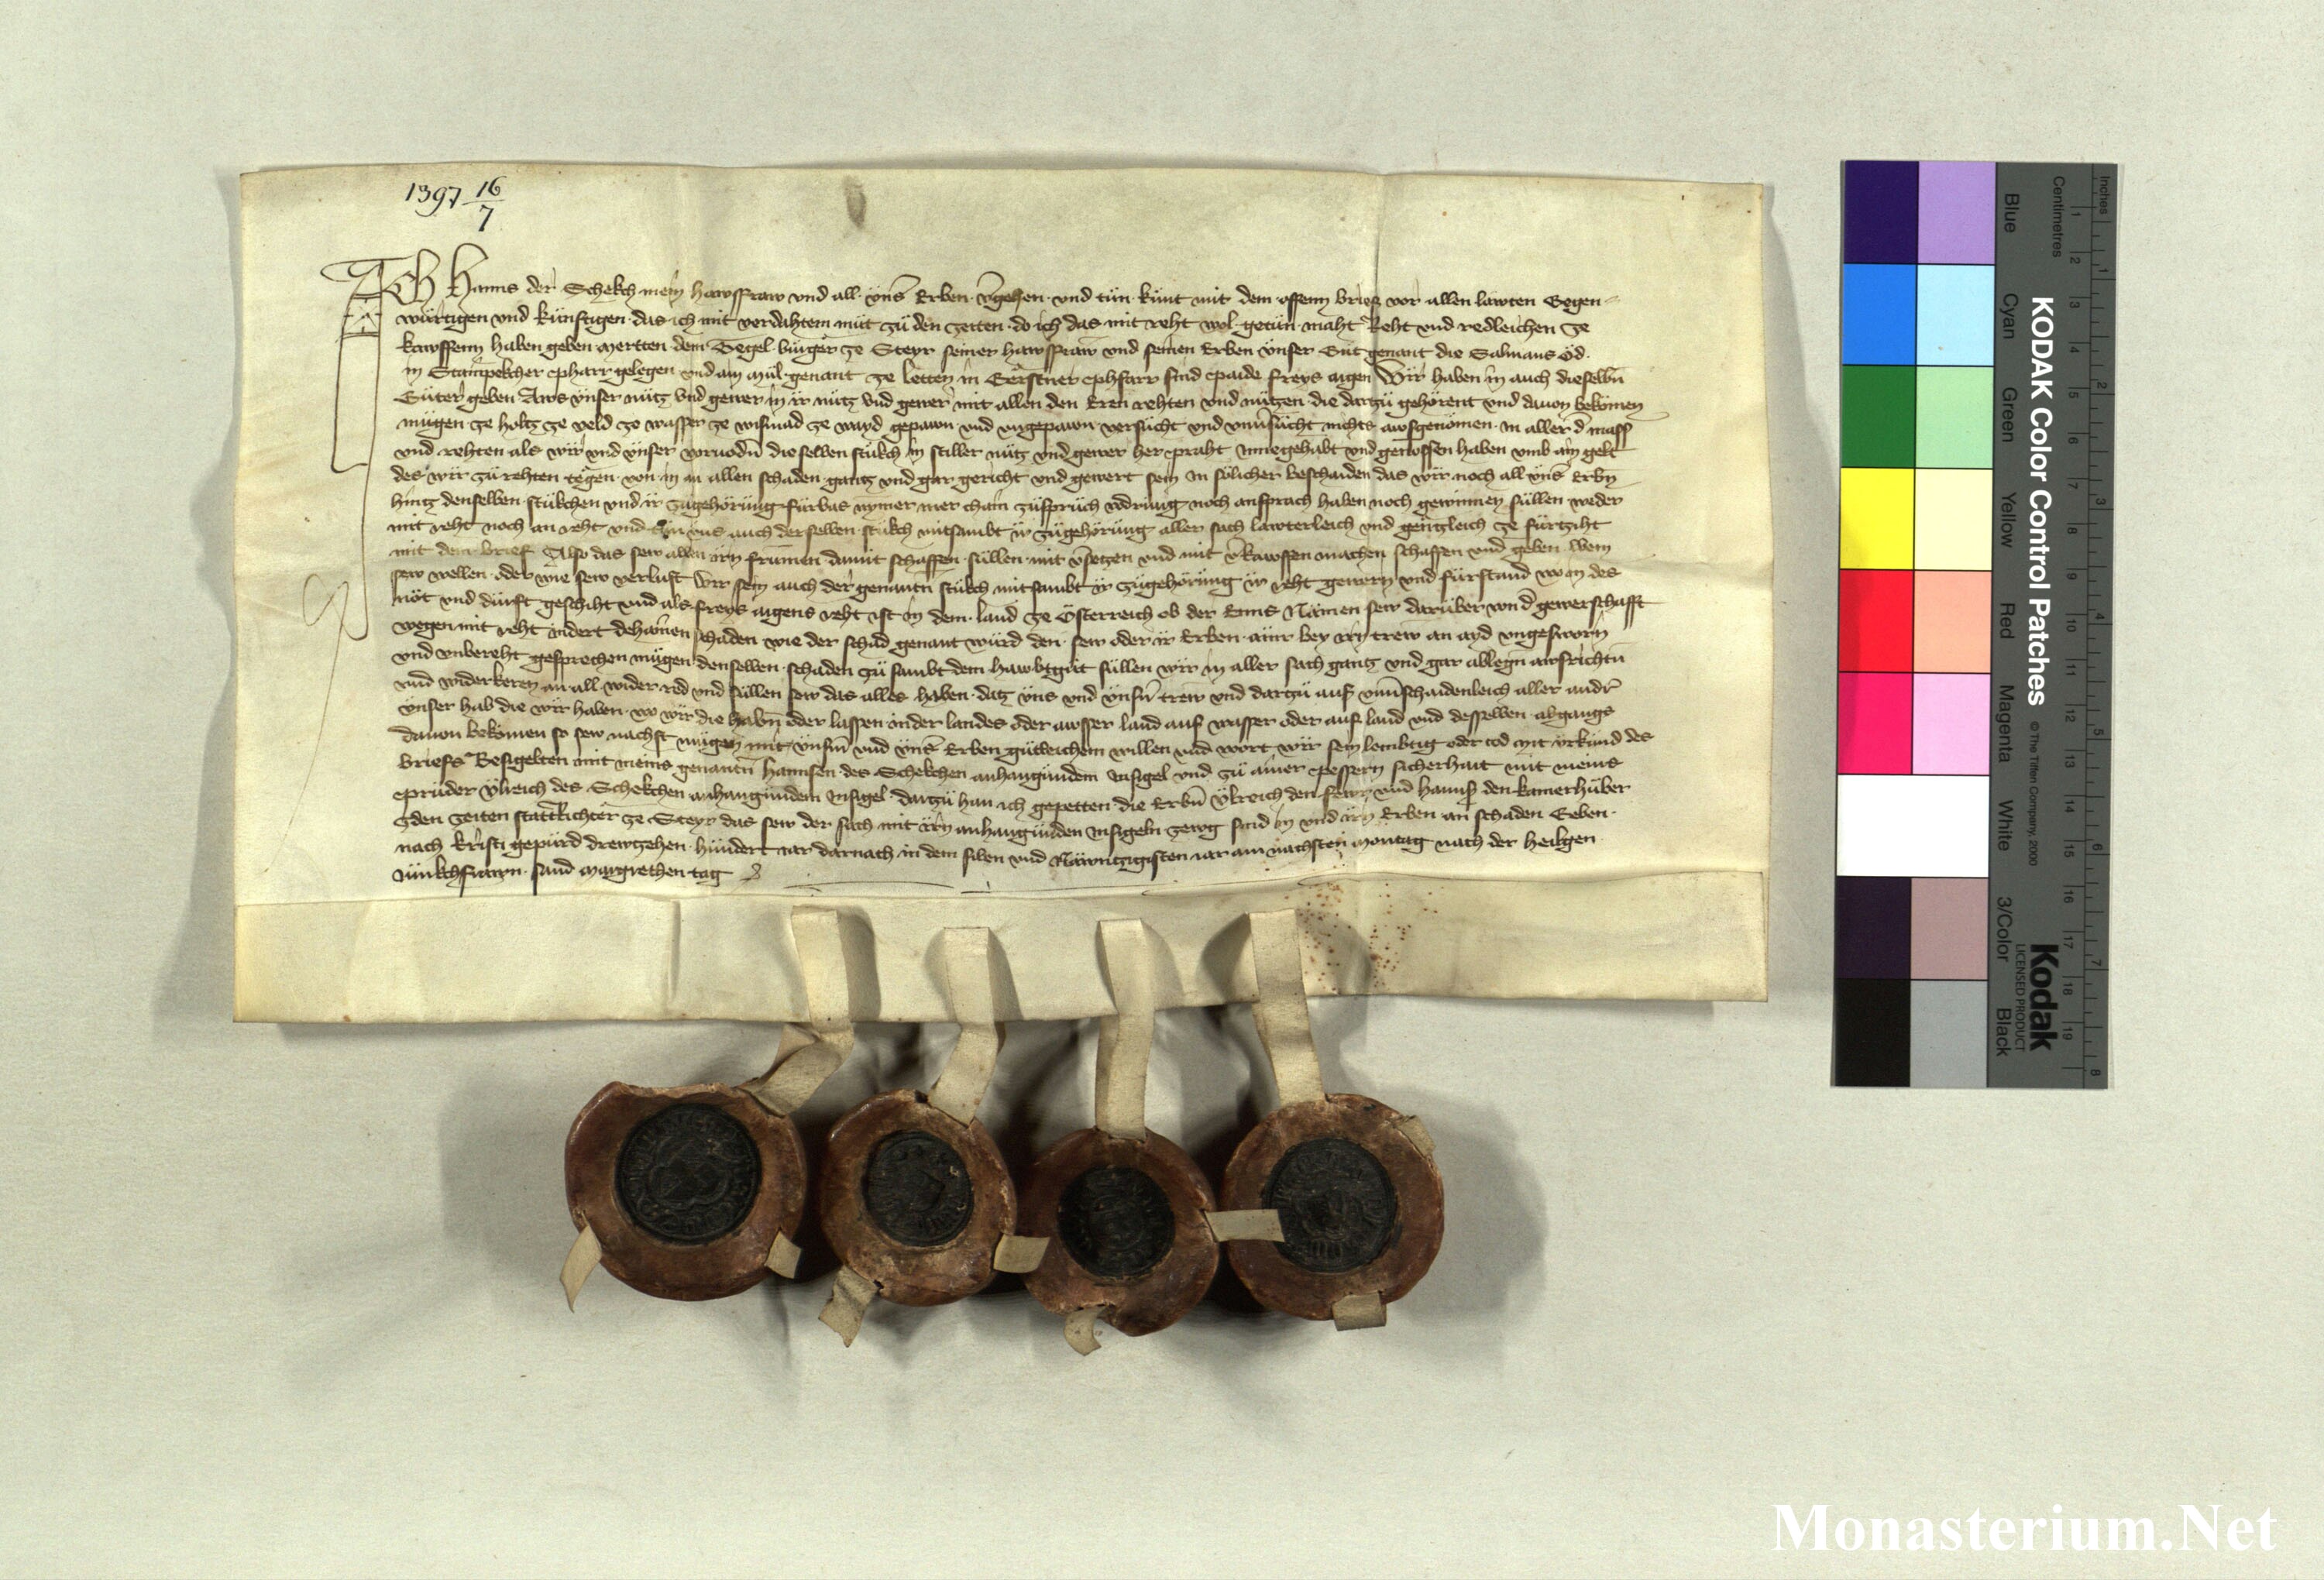 1397 16/7
Ich Hanns der Schekch mein hawsfraw vnd all vnser Erben vergehen vnd tün künt mit dem offenn brief vor allen lawten Gegen-
würtigen vnd künftigen das ich mit verdahtem müt zü den zeiten do ich das mit reht wol getün maht Reht vnd redleichen ze
kawffenn haben geben Mertten dem Segel burger ze Steyr seiner hawsfraw vnd seinen Erben vnser Güt genant die Salmans Öd
in pharr gelegen vnd ain Mül genant ze Letten in Gerstner phfarr sind paide freys aigen Wir haben in auch dieselbn
Güter geben Aws vnser nütz vnd gewer in ir nütz vnd gewer mit allen den Eren rehten vnd nützen die dartzü gehörent vnd dauon bekömen
mügen ze holtz ze veld ze wasser ze wismad ze wayd gepawn vnd vngepawn versücht vnd vnuersücht nichts awsgenömen in aller der mass
vnd rehten als wir vnd vnser voruodern dieselben stükch in stiller nütz vnd gewer her praht Innegehabt vnd genossen haben vmb ain gelt
des wir zü rehten tegen von in an allen schaden gantz vnd gar gericht vnd gewert sein In sölicher beschaiden das wir noch all vns Erbn
hintz denselben stükchen vnd ir zügehörüng fürbas nymer mer chain züsprüch vodrüng noch ansprach haben noch gewinnen süllen weder
mit reht noch an reht vnd vns auch derselben stükch mitsambt ir zügehörüng aller sach lawterleich vnd gentzleich ze fürtziht
mit dem brief Also das sew allen irn frümen damit schaffen süllen mit versetzen vnd mit verkawffen machen schaffen vnd geben wem
sew wellen oder wie sew verlust Wir sein auch der genantn stükch mitsambt ir zügehörüng ir reht gewern vnd fürstand wo in des
nöt vnd dürft geschiht vnd als freys aigens reht ist in dem land ze Österreich ob der Enns Nämen sew darüber von der gewerschafft
wegen mit reht indert dehainen schaden wie der schad genant würd den sew oder ir Erben ainr bey irn trewn an ayd vngesworn
vnd vnbereht gesprechen mügen denselben schaden zü sambt dem hawbtgüt süllen wir in aller sach gantz vnd gar ablegn awsrichtn
vnd widerkeren an all wider red vnd süllen sew das alles haben datz vns vnd vnsern trewn vnd dartzü auf vnuerschaidenleich aller andr
vnser hab die wir haben wo wir die habn oder lassen inder landes oder awsser land auf wasser oder auf land vnd desselben abgangs
dauon bekömen so sew nachst mügen mit vnserm vnd vnser Erben gütleichem willen vnd wort wir sein lembtig oder tod Mit vrkünd des
briefs Besigelten mit meins genantn Hannsen des Schekchen anhangündem Insigel vnd zü ainer pessern sicherhait mit meins
prüder Vlreich des Schekchen anhangündem Insigel dartzü han ich gepetten die Erbn Vlreich den vnd Hanns den kamerhüber
zden zeiten stattrichter ze Steyr das sew der sach mit irn anhangünden Insigeln zewg sind in vnd irn Erben an schaden Geben
nach kristi gepürd drewtzehen hündert iar darnach in dem siben vnd Näwntzigisten iar am nächsten Montag nach der heilgen
iünkchfrawn sand Margrethen tag
KODAK Color Control Patches
© The Tiffen Company, 2000
Kodak
LICENSED PRODUCT
Inches 1 2 3 4 5 6 7 8
Centimetres 1 2 3 4 5 6 7 8 9 10 11 12 13 14 15 16 17 18 19
Blue Cyan Green Yellow Red Magenta White 3/Color Black
Monasterium.Net